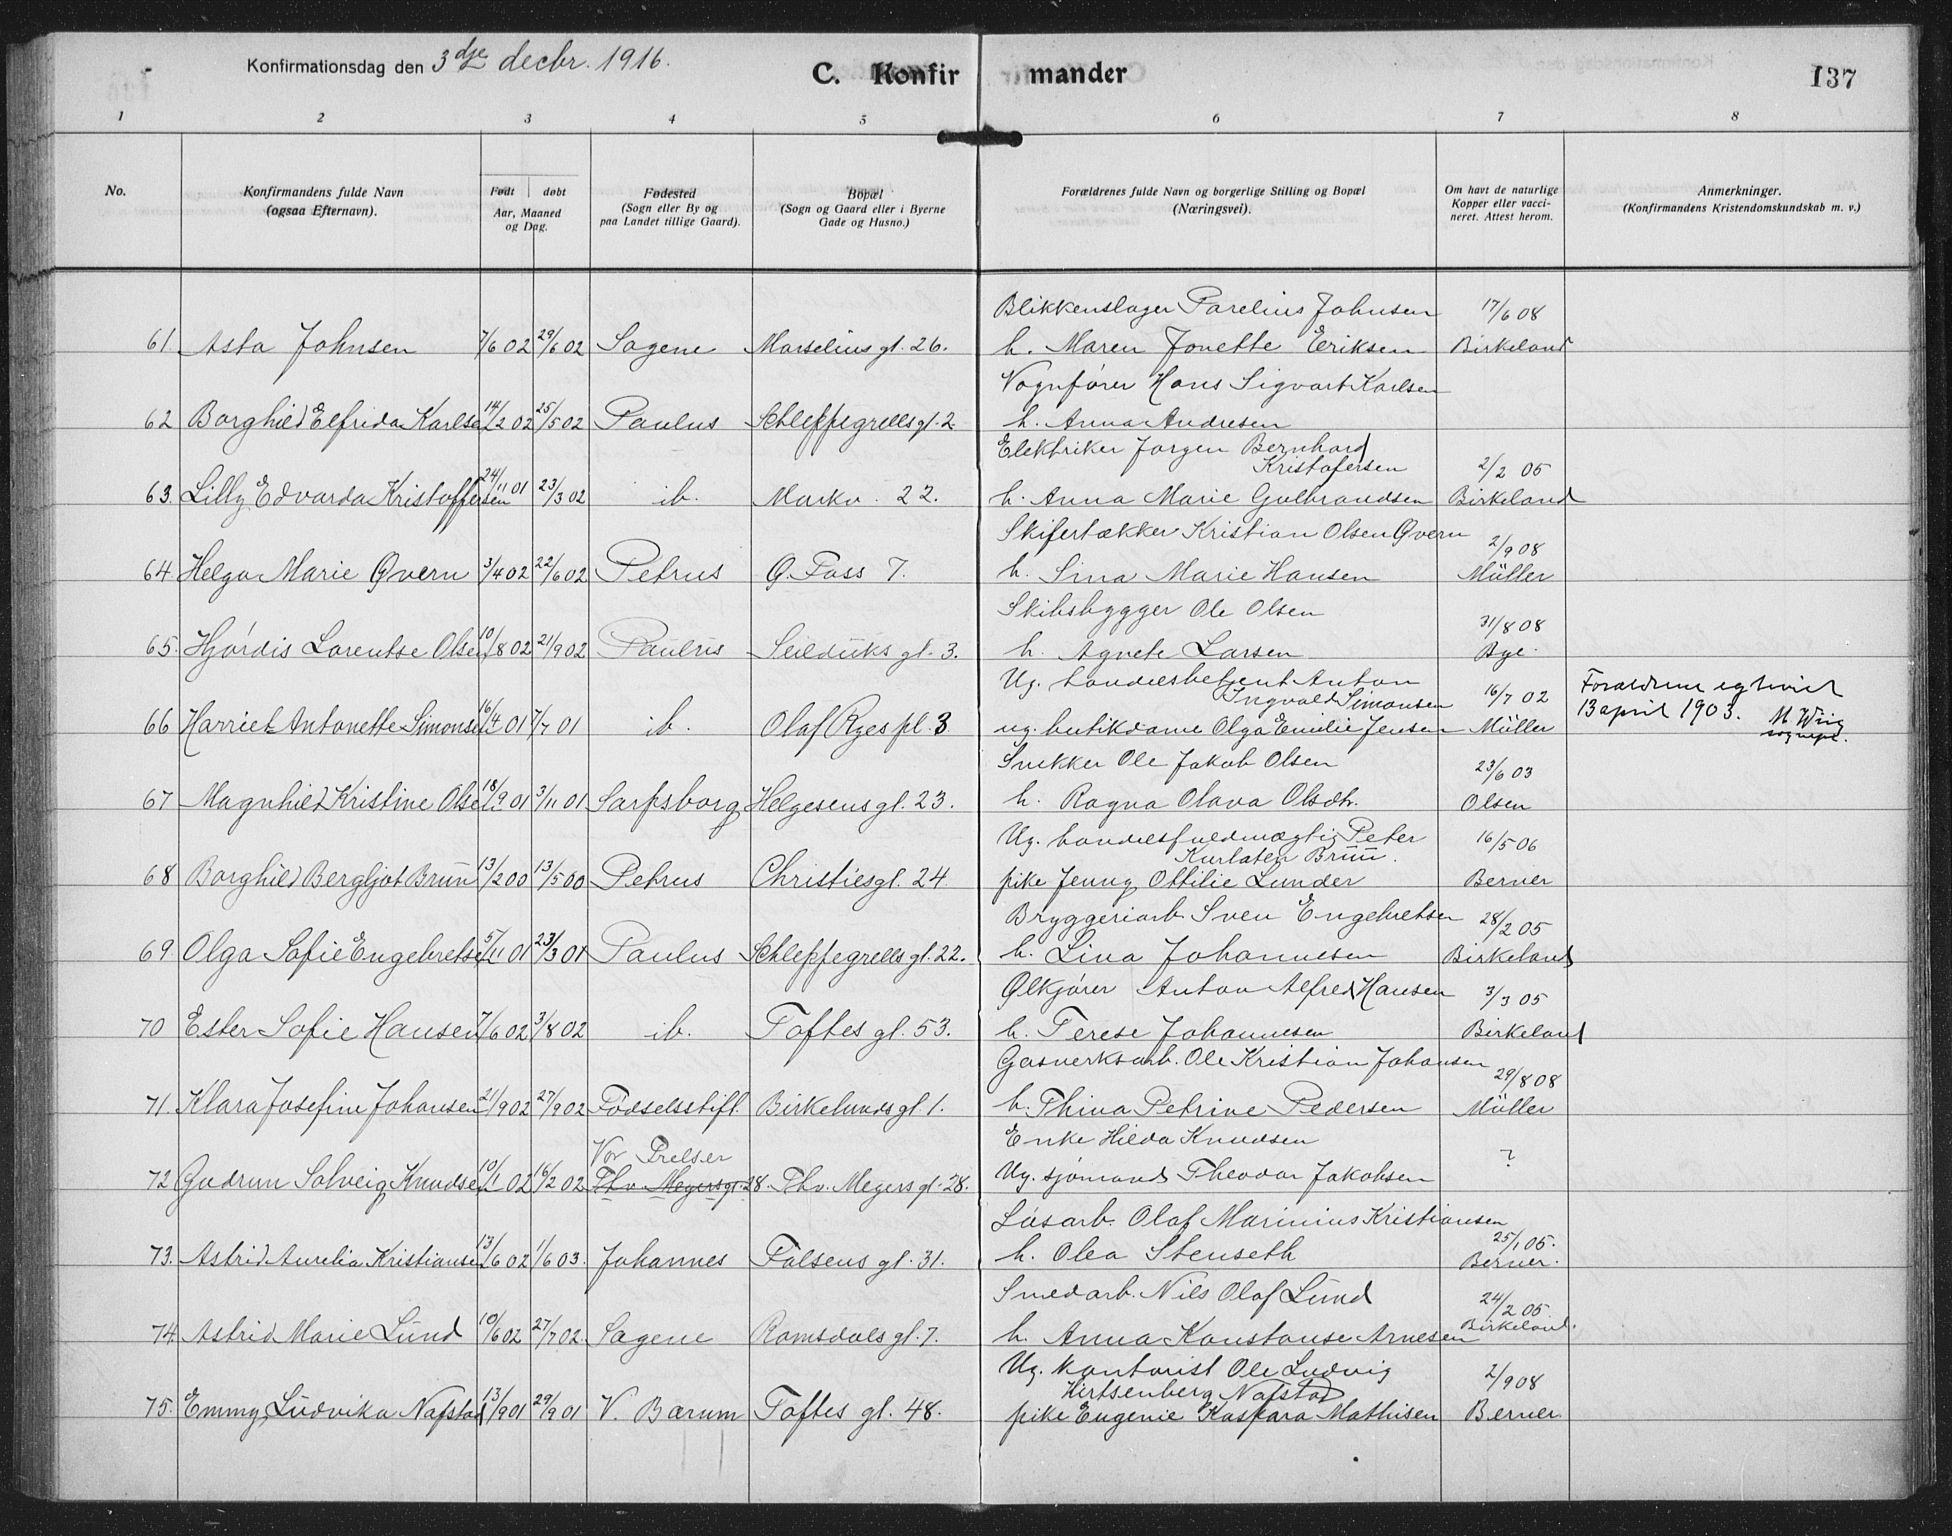 Konfirmationsdag den 3dje decbr. 1916.
C. Konfirmander
137
1 2 3 4 5 6 7 8
No.
Konfirmandens fulde Navn
(ogsaa Efternavn).
Født døbt
Aar, Maaned
og Dag.
Fødested
(Sogn eller By og
paa Landet tillige Gaard).
Bopæl
(Sogn og Gaard eller i Byerne
Gade og Husno.)
Forældrenes fulde Navn og borgerlige Stilling og Bopæl
(Næringsvei).
Om havt de naturlige
Kopper eller vacci-
neret. Attest herom.
Anmerkninger.
(Konfirmandens Kristendomskundskab m. v.)
Blikkenslager Parelius Johnsen 17/6 08
61. Asta Johnsen 7/6 02 29/6 02 Sagene Marselius gt. 26. h. Maren Jonette Eriksen Birkeland
Vognfører Hans Sigvart Karlsen
62 Borghild Elfrida Karlsen 14/2 02 25/5 02 Paulus Schleppegrells gt. 2 h. Anna Andresen
Elektriker Jørgen Bernhard
Kristofersen 2/2 05
63. Lilly Edvarda Kristoffersen 24/11 01 23/3 02 ib. Markv. 22. h. Anna Marie Gulbrandsen Birkeland
Skifertækker Kristian Olsen Qvern 2/9 08
64. Helga Marie Qvern 3/4 02 22/6 02 Petrus Ø. Foss 7. h. Sina Marie Hansen Müller
Skibsbygger Ole Olsen 31/8 08
65. Hjørdis Lorentse Olsen 10/8 02 21/9 02 Paulus Seilduks gt. 3. h. Agnete Larsen Bye.
Ug. handelsbetjent Anton
Ingvald Simonsen 16/7 02 Forældrene egteviet
66 Harriet Antonette Simonsen 16/4 01 7/7 01 ib. Olaf Ryes pl. 3 ug. butikdame Olga Emilie Jensen Müller 13 april 1903. M Wiig
sognepr.
Snekker Ole Jakob Olsen 23/6 03
67 Magnhild Kristine Olsen 18/9 01 3/11 01 Sarpsborg Helgesens gt. 23. h. Ragna Olava Olsdtr. Olsen
Ug. handelsfuldmægtig Peter
Brün. 16/5 06
68 Borghild Bergljot Brün 13/2 00 13/5 00 Petrus Christies gt. 24 pike Jenny Ottilie Lunder Berner
Bryggeriarb. Sven Engebretsen 28/2 05
69. Olga Sofie Engebretsen 5/11 01 23/3 01 Paulus Schleppegrells gt. 22. h. Lina Johannesen Birkeland
Ølkjører Anton Alfred Hansen 3/3 05
70 Ester Sofie Hansen 7/6 02 3/8 02 ib. Toftes gt. 53. h. Terese Johannesen Birkeland
Gasverksarb. Ole Kristian Johansen 29/8 08
71. Klara Josefine Johansen 21/9 02 27/9 02 Fødselsstift. Birkelunds gt. 1. h. Thina Petrine Pedersen Müller
Vor Frelser Enke Hilda Knudsen ?
72 Gudrun Solveig Knudsen 10/1 02 16/2 02 Thv. Meyersgt. 28. Thv. Meyers gt. 28. Ug. sjømand Theodor Jakobsen
Løsarb. Olaf Marinius Kristiansen 25/1 05.
73. Astrid Aurelia Kristiansen 13/6 02 1/6 03. Johannes Falsens gt. 31. h. Olea Stenseth Berner.
Smedarb. Nils Olaf Lund 24/2 05
74 Astrid Marie Lund 10/6 02 27/7 02. Sagene Romsdals gt. 7. h. Anna Konstanse Arnesen Birkeland.
Ug. kontorist Ole Ludvig
Hirtsenberg Nafstad 2/9 08
75. Emmy Ludvika Nafstad 13/9 01 29/9 01 V. Bærum Toftes gt. 48. pike Eugenie Kaspara Mathisen Berner.